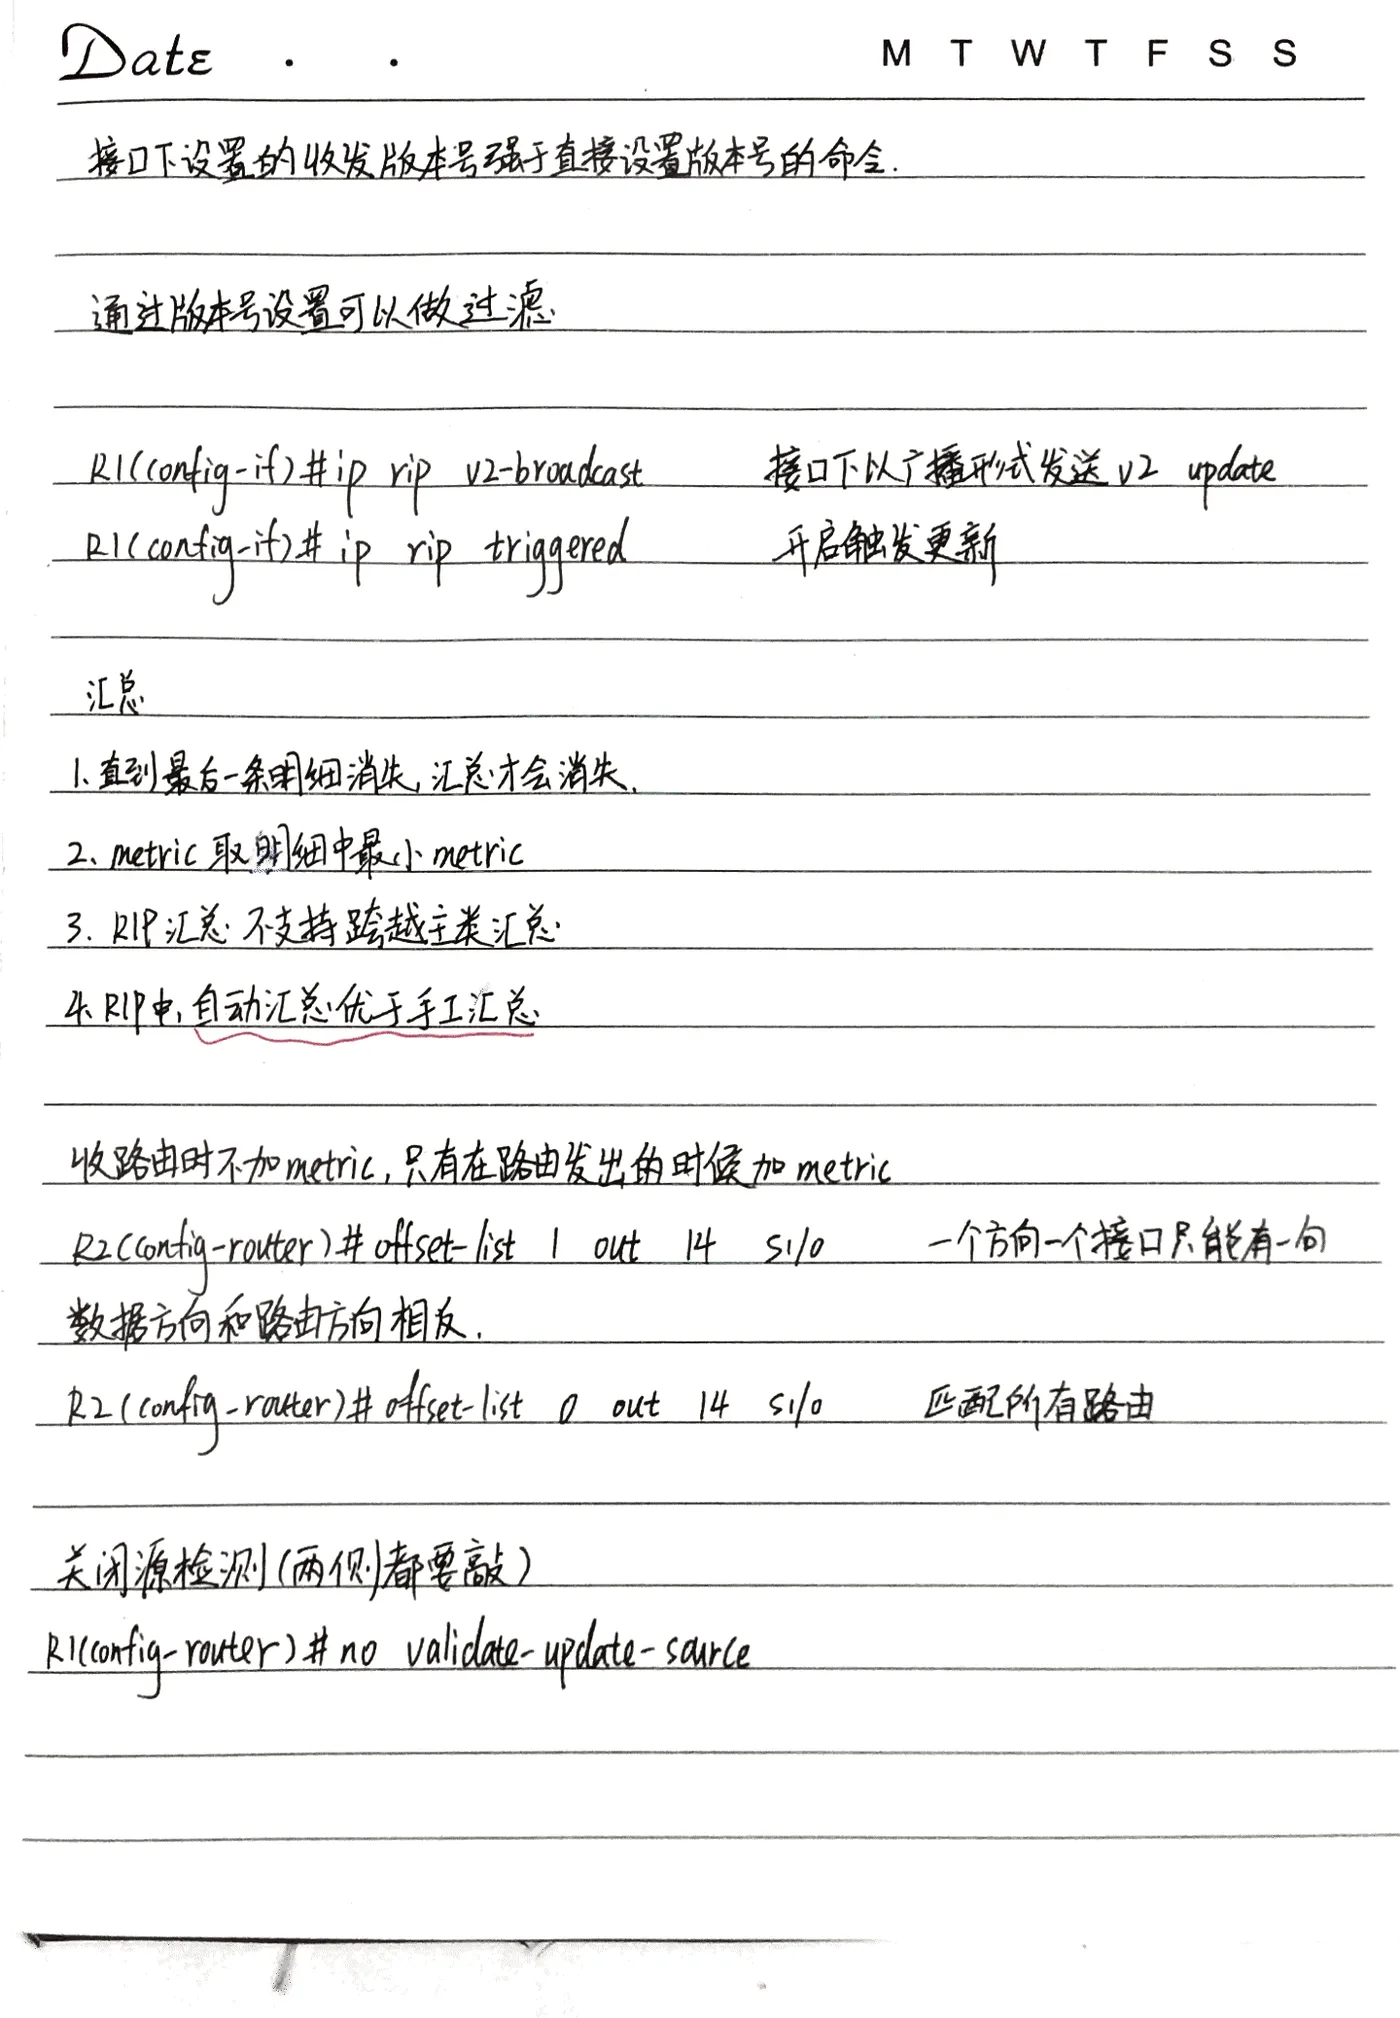 Date . . M T W T F S S
接口下设置的收发版本号强于直接设置版本号的命令.
通过版本号设置可以做过滤
R1(config-if)#ip rip v2-broadcast 接口下以广播形式发送v2 update
R1(config-if)# ip rip triggered 开启触发更新
汇总
1、直到最后一条明细消失,汇总才会消失.
2、metric 取明细中最小metric
3. RIP汇总 不支持跨越主类汇总
4. RIP中, 自动汇总优于手工汇总
收路由时不加metric,只有在路由发出的时候加metric
R2(config-router)# offset-list 1 out 14 s1/0 一个方向一个接口只能有一句
数据方向和路由方向相反.
R2(config-router)# offset-list 0 out 14 s1/0 匹配所有路由
关闭源检测(两侧都要敲)
R1(config-router)#no validate-update-source